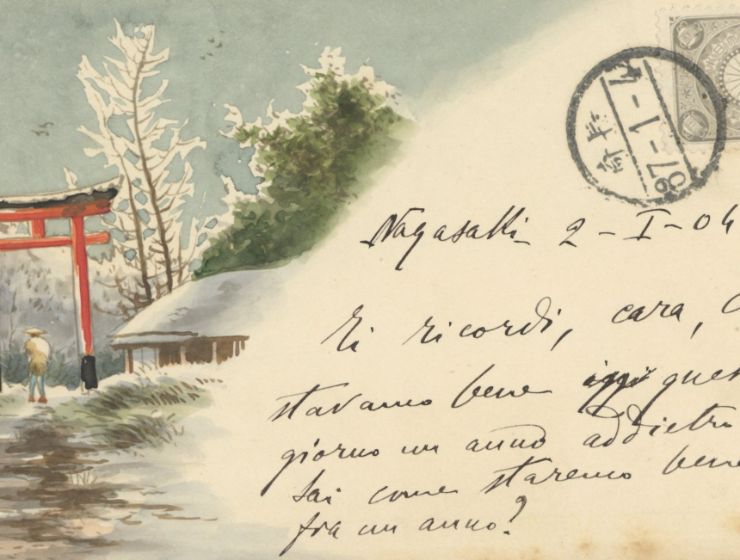 長崎
37-1-4
Nagasaki - 2-I-04
Ti ricordi, cara,
stavamo bene que
giorno un anno addietro
Sai come staremo bene
fra un anno?